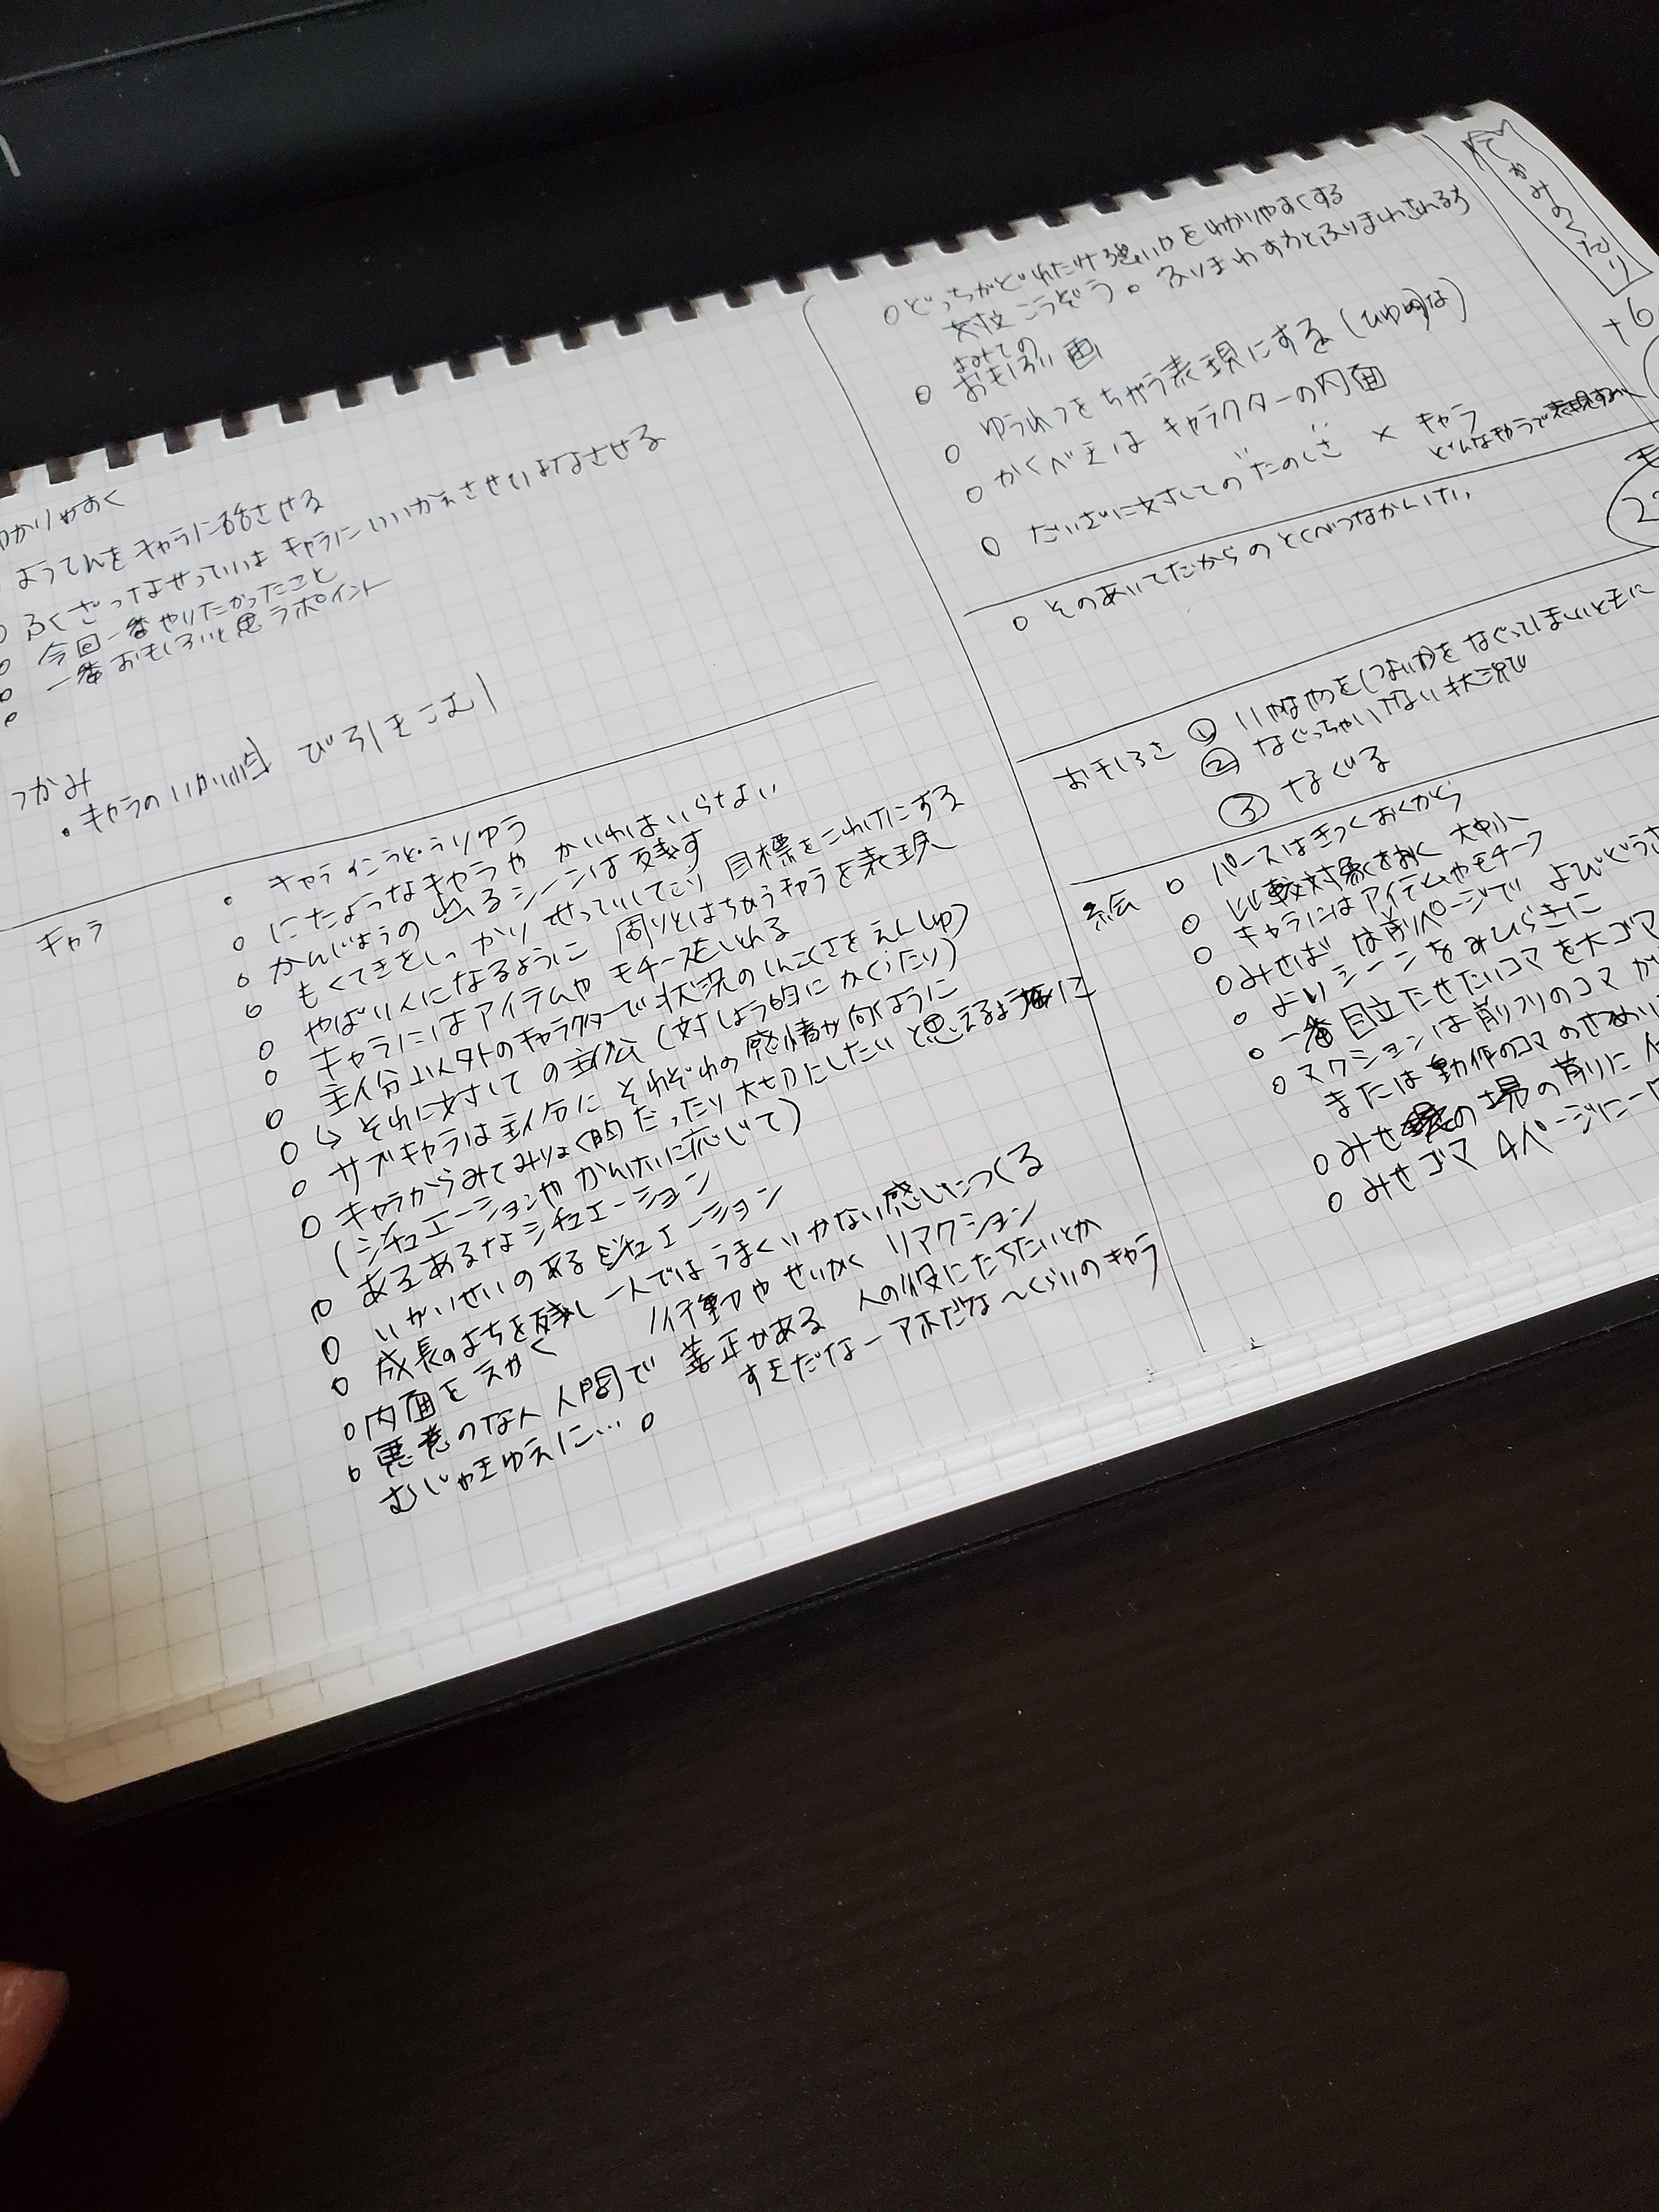 わかりやすく
ようてんをキャラに話させる
ふくざつなせっていは キャラにいいかえさせ
今回一番やりたかったこと
一番おもしろいと思うポイント
つかみ
・キャラの で引きこむ
キャラ
・キャラ
○ にたようなキャラや かいわはいらない
○ かんじょうの出るシーンは残す
○ もくてきをしっかりせっていしてこり 目標をこわけにする
○ やばい人になるように 周りとはちがうキャラを表現
○ キャラにはアイテムや モチーフをいれる
○ 主人公以外のキャラクターで状況のしんこくさをえんしゅつ
○ ↳ それに対しての主人公(対しょう的にかくいったり)
○ サブキャラは主人公に それぞれの感情が向くように
○ キャラからみてみりょく的だったり 大切にしたいと思えるように
(シチュエーションやかんけいに応じて)
○ あるあるなシチュエーション
○ いがいせいのあるシチュエーション
○ 成長のよちを残し 一人ではうまくいかない感じにつくる
○ 内面をえがく 行動やせいかく リアクション
○ 悪意のない人間で 善正がある 人の役にたちたいとか
むじゃきゆえに…○ すきだなーアホだな〜くらいのキャラ
○ どっちがどれだけ強いかをわかりやすくする
対立こうぞう。ふりまわす方とふりまわされる方
○ よみての
おもしろい画
○ ゆうれつをちがう表現にする(ひゆ的な)
○ かくべきは キャラクターの内面
○ だいざいに対しての"たのしさ" × キャラ
どんなキャラで
○ そのあいてだからのとくべつなかんけい
おもしろさ ① いやなやつを なぐってしまいともに
② なぐっちゃいけない状況で
③ なぐる
絵 ○ パースはきつくおくから
○ 比較対象をおく 大中小
○ キャラにはアイテムやモチーフ
○ みせばは前ページで よびどうさ
○ よいシーンをみひらきに
○ 一番目立たせたいコマを大ゴマ
○ アクションは前フリのコマ か
または動作のコマの
○ みせ の場の前に
○ みせゴマ 4ページに一
てがみのくだり
+6